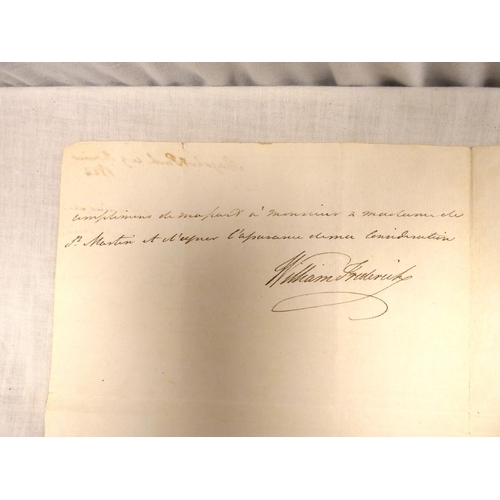 complimens de ma part à monsieur & madame de
St Martin et d'agréer l'assurance de ma Considération
William Frederick